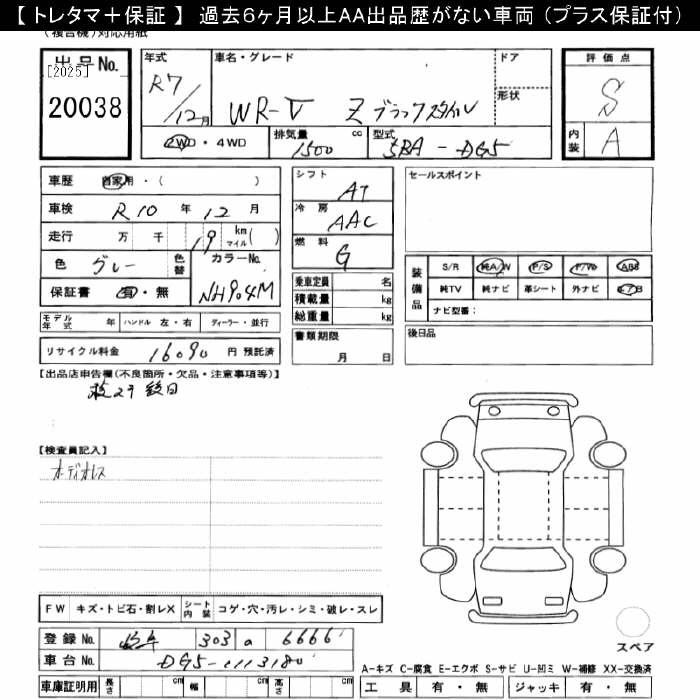 【 トレタマ＋保証 】 過去６ヶ月以上ＡＡ出品歴がない車両（プラス保証付）
(複合機)対応用紙
出品No.
[2025]
20038
年式
R7/12月
車名・グレード
WR-V Z ブラックスタイル
ドア
形状
2WD・4WD
排気量
1500 cc
型式
5BA - DG5
評価点
S
内装
A
車歴 自家用・( )
車検 R10 年 12 月
走行 万 千 19 km マイル ( )
色 グレー 色替
カラーNo. NH904M
保証書 有・無
シフト AT
冷房 AAC
燃料 G
乗車定員 名
積載量 kg
総重量 kg
セールスポイント
装備品
S/R 純A/W P/S P/W ABS
純TV 純ナビ 革シート 外ナビ
ナビ型番：
モデル年式 年 ハンドル 左・右 ディーラー・並行
リサイクル料金 16090 円 預託済
書類期限
月 日
後日品
【出品店申告欄(不良箇所・欠品・注意事項等)】
後日
【検査員記入】
オーディオレス
FW キズ・トビ石・割レX シート内装 コゲ・穴・汚レ・シミ・破レ・スレ
登録No. 303 a 6666
車台No. DG5-1113180
車庫証明用 長さ cm 幅 cm 高さ cm
スペア
A-キズ C-腐食 E-エクボ S-サビ U-凹ミ W-補修 XX-交換済
工具 有・無 ジャッキ 有・無